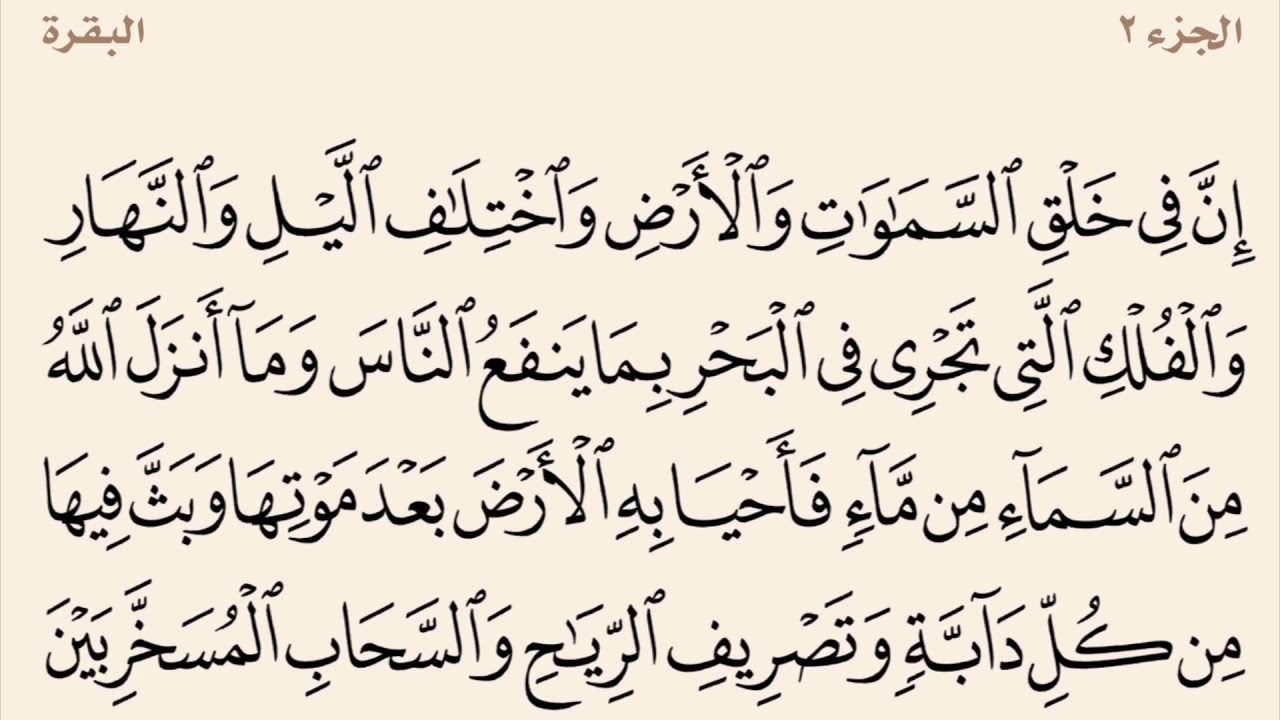 الجزء ٢
البقرة
إِنَّ فِى خَلْقِ ٱلسَّمَـٰوَٰتِ وَٱلْأَرْضِ وَٱخْتِلَـٰفِ ٱلَّيْلِ وَٱلنَّهَارِ
وَٱلْفُلْكِ ٱلَّتِى تَجْرِى فِى ٱلْبَحْرِ بِمَا يَنفَعُ ٱلنَّاسَ وَمَآ أَنزَلَ ٱللَّهُ
مِنَ ٱلسَّمَآءِ مِن مَّآءٍ فَأَحْيَا بِهِ ٱلْأَرْضَ بَعْدَ مَوْتِهَا وَبَثَّ فِيهَا
مِن كُلِّ دَآبَّةٍ وَتَصْرِيفِ ٱلرِّيَـٰحِ وَٱلسَّحَابِ ٱلْمُسَخَّرِ بَيْنَ